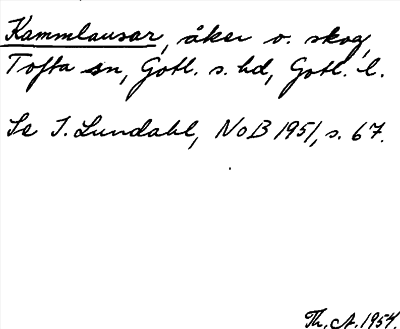 Kammlausar, åker o. skog,
Tofta sn, Gotl. s. hd, Gotl. l.
Se I. Lundahl, NoB 1951, s. 67.
Th. A. 1954.